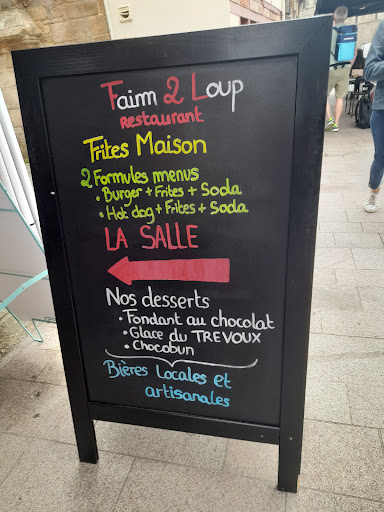 Faim 2 Loup
Restaurant
Frites Maison
2 Formules menus
• Burger + Frites + Soda
• Hot dog + Frites + Soda
LA SALLE
Nos desserts
• Fondant au chocolat
• Glace du TREVOUX
• Chocobun
Bières Locales et
artisanales